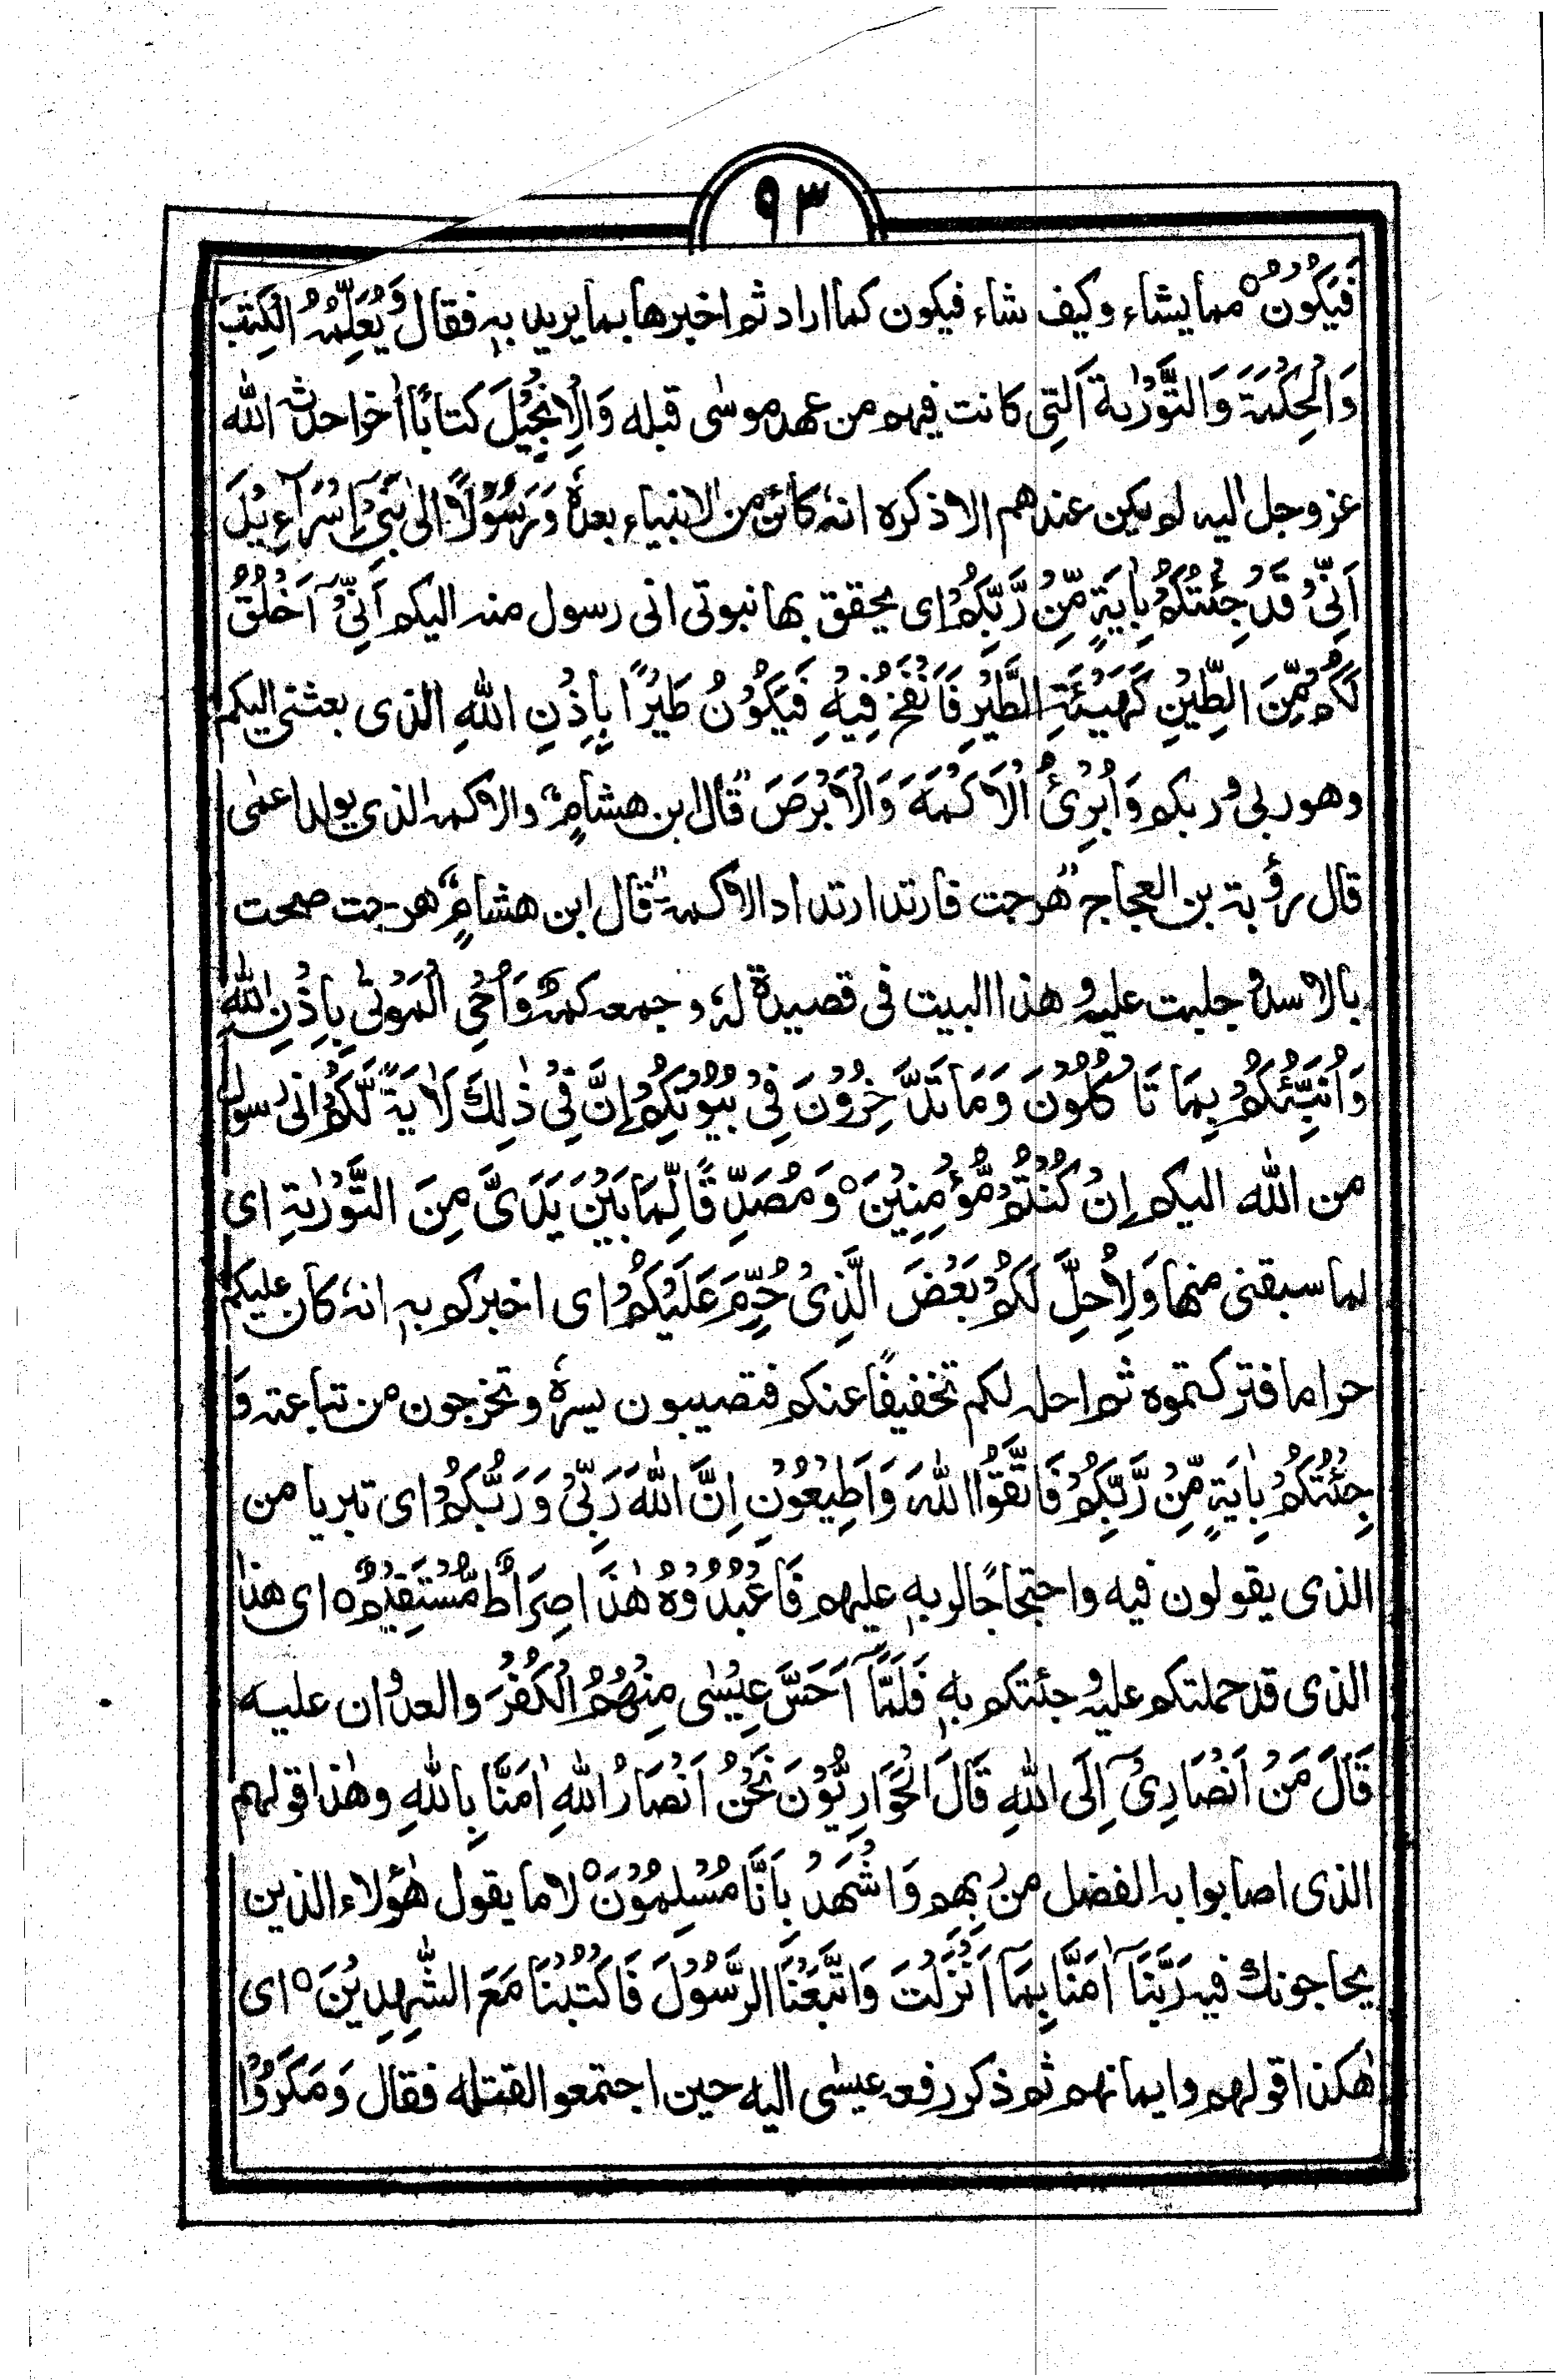 ٩٣
فَيَكُوْنُ ○ مما يشاء وكيف شاء فيكون كما اراد ثم اخبرها بما يريد بهٖ فقال وَيُعَلِّمُهُ الْكِتٰبَ
وَالْحِكْمَةَ وَالتَّوْرٰىةَ التى كانت فيهم من عهد موسٰى قبله وَالْاِنْجِيْلَ كتابًا اٰخر احدثه الله
عز وجل اليه لم يكن عندهم الا ذكره انهٗ كائن من الانبياء بعدهٗ وَرَسُوْلًا اِلٰى بَنِىْٓ اِسْرَآءِيْلَ
اَنِّىْ قَدْ جِئْتُكُمْ بِاٰيَةٍ مِّنْ رَّبِّكُمْ اى يحقق بها نبوتى انى رسول منه اليكم اَنِّىْٓ اَخْلُقُ
لَكُمْ مِّنَ الطِّيْنِ كَهَيْئَةِ الطَّيْرِ فَاَنْفُخُ فِيْهِ فَيَكُوْنُ طَيْرًا بِاِذْنِ اللّٰهِ الذى بعثنى اليكم
وهو ربى وربكم وَاُبْرِئُ الْاَكْمَهَ وَالْاَبْرَصَ "قال ابن هشامٍ" والاكمه الذى يولد اعمٰى
قال رؤبة بن العجاج "هرجت فارتد ارتداد الاكمه" "قال ابن هشامٍ" هرجت صحت
بالاسد و جلبت عليه و هذا البيت فى قصيدة لهٗ و جمعه كمهٌ وَاُحْىِ الْمَوْتٰى بِاِذْنِ اللّٰهِ
وَاُنَبِّئُكُمْ بِمَا تَاْكُلُوْنَ وَمَا تَدَّخِرُوْنَ فِىْ بُيُوْتِكُمْ اِنَّ فِىْ ذٰلِكَ لَاٰيَةً لَّكُمْ انى رسول
من اللّٰه اليكم اِنْ كُنْتُمْ مُّؤْمِنِيْنَ ○ وَمُصَدِّقًا لِّمَا بَيْنَ يَدَىَّ مِنَ التَّوْرٰىةِ اى
لما سبقنى منها وَلِاُحِلَّ لَكُمْ بَعْضَ الَّذِىْ حُرِّمَ عَلَيْكُمْ اى اخبركم بهٖ انهٗ كان عليكم
حراما فتركتموه ثم احله لكم تخفيفًا عنكم فتصيبون يسرهٗ و تخرجون من تباعته وَ
جِئْتُكُمْ بِاٰيَةٍ مِّنْ رَّبِّكُمْ فَاتَّقُوا اللّٰهَ وَاَطِيْعُوْنِ اِنَّ اللّٰهَ رَبِّىْ وَرَبُّكُمْ اى تبريا من
الذى يقولون فيه واحتجاجًا لربهٖ عليهم فَاعْبُدُوْهُ هٰذَا صِرَاطٌ مُّسْتَقِيْمٌ ○ اى هذا
الذى قد حملتكم عليه و جئتكم بهٖ فَلَمَّآ اَحَسَّ عِيْسٰى مِنْهُمُ الْكُفْرَ والعدوان عليه
قَالَ مَنْ اَنْصَارِىْٓ اِلَى اللّٰهِ قَالَ الْحَوَارِيُّوْنَ نَحْنُ اَنْصَارُ اللّٰهِ اٰمَنَّا بِاللّٰهِ وهٰذا قولهم
الذى اصابوا به الفضل من ربهم وَاشْهَدْ بِاَنَّا مُسْلِمُوْنَ ○ لا ما يقول هٰؤلاء الذين
يحاجونك فيه رَبَّنَآ اٰمَنَّا بِمَآ اَنْزَلْتَ وَاتَّبَعْنَا الرَّسُوْلَ فَاكْتُبْنَا مَعَ الشّٰهِدِيْنَ ○ اى
هٰكذا قولهم وايمانهم ثم ذكر رفعه عيسٰى اليه حين اجتمعوا لقتله فقال وَمَكَرُوْا